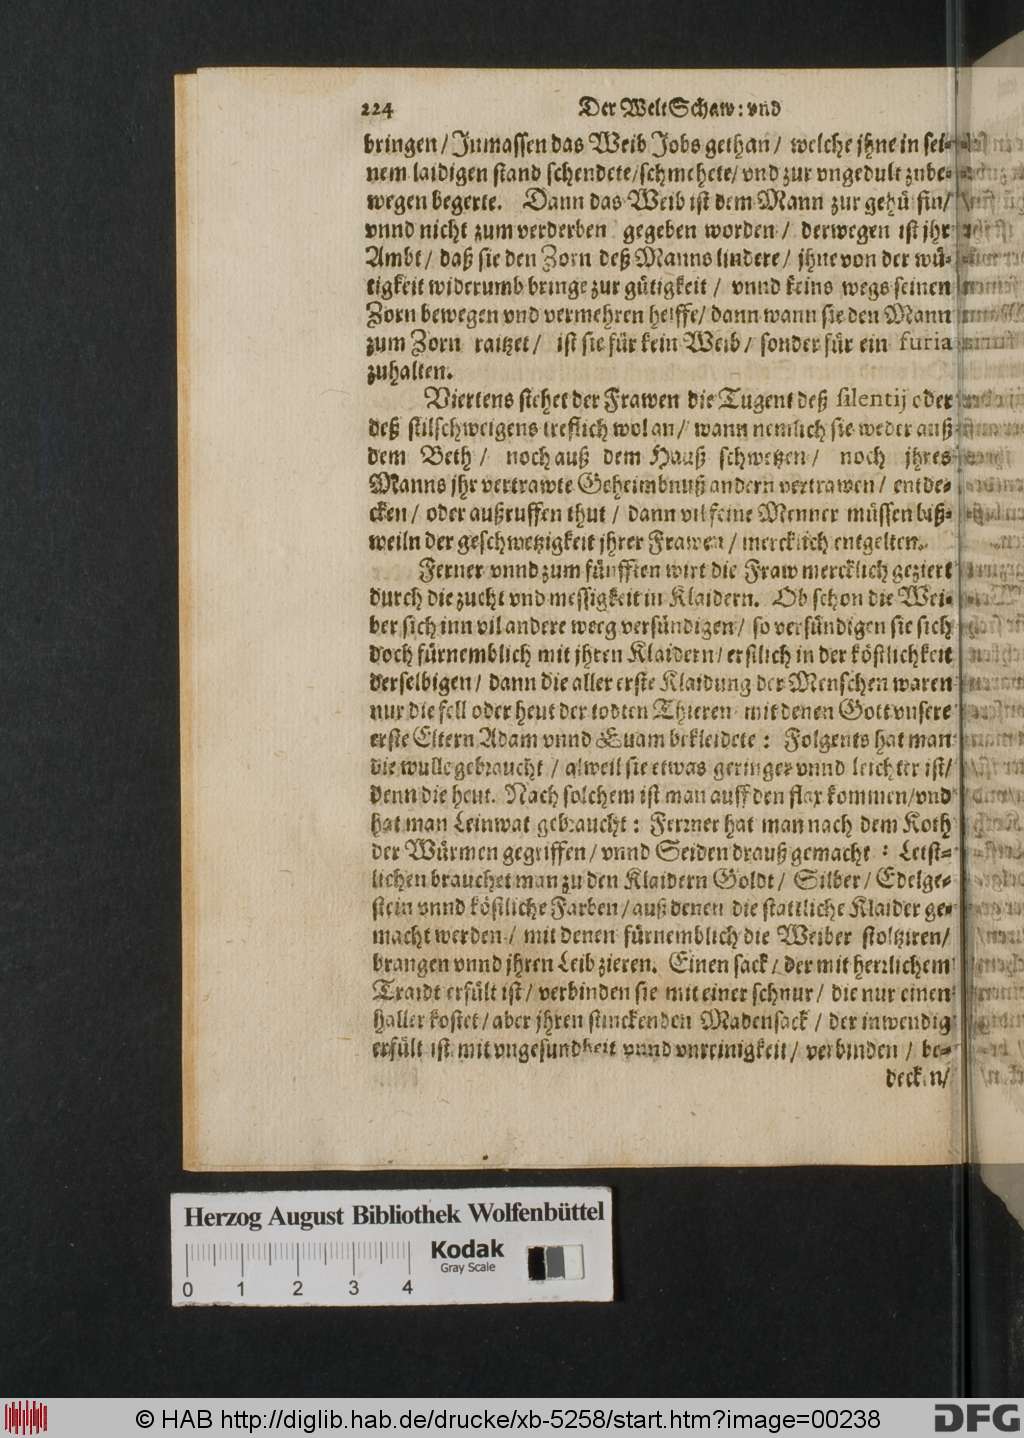 224 Der Welt Schaw: vnd
bringen / Inmassen das Weib Jobs gethan / welche jhne in sei-
nem laidigen stand schendete/schmehete/ vnd zur vngedult zube-
wegen begerte. Dann das Weib ist dem Mann zur gehü fin/
vnnd nicht zum verderben gegeben worden / derwegen ist jhr
Ambt / daß sie den Zorn deß Manns lindere / jhne von der wü-
tigkeit widerumb bringe zur gütigkeit / vnnd keins wegs seinen
Zorn bewegen vnd vermehren helffe/ dann wann sie den Mann
zum Zorn raitzet / ist sie für kein Weib / sonder für ein furia
zuhalten.
Viertens stehet der Frawen die Tugent deß silentij oder
deß stilschweigens treflich wol an / wann nemlich sie weder auß
dem Beth / noch auß dem Hauß schwetzen / noch jhres
Manns jhr vertrawte Geheimbnuß andern vertrawen / entde-
cken / oder außruffen thut / dann vil feine Menner müssen biß-
weiln der geschwetzigkeit jhrer Frawen / mercklich entgelten.
Ferner vnnd zum fünfften wirt die Fraw mercklich geziert
durch die zucht vnd messigkeit in Klaidern. Ob schon die Wei-
ber sich inn vil andere weeg versündigen / so versündigen sie sich
doch fürnemblich mit jhren Klaidern / erstlich in der köstlichkeit
derselbigen / dann die aller erste Klaidung der Menschen waren
nur die fell oder heut der todten Thieren mit denen Gott vnsere
erste Eltern Adam vnnd Euam bekleidete : Folgents hat man
die wulle gebraucht / alweil sie etwas geringer vnnd leichter ist/
denn die heut. Nach solchem ist man auff den flax kommen/vnd
hat man Leinwat gebraucht : Ferrner hat man nach dem Koth
der Würmen gegriffen / vnnd Seiden drauß gemacht : Letst-
lichen brauchet man zu den Klaidern Goldt / Silber / Edelge-
stein vnnd köstliche Farben / auß denen die stattliche Klaider ge-
macht werden / mit denen fürnemblich die Weiber stoltziren/
brangen vnnd jhren Leib zieren. Einen sack / der mit herrlichem
Traidt erfült ist / verbinden sie mit einer schnur / die nur einen
haller kostet / aber jhren stinckenden Madensack / der inwendig
erfült ist mit vngesundheit vnnd vnreinigkeit / verbinden / be-
decken/
Herzog August Bibliothek Wolfenbüttel
Kodak
Gray Scale
0 1 2 3 4
© HAB http://diglib.hab.de/drucke/xb-5258/start.htm?image=00238
DFG